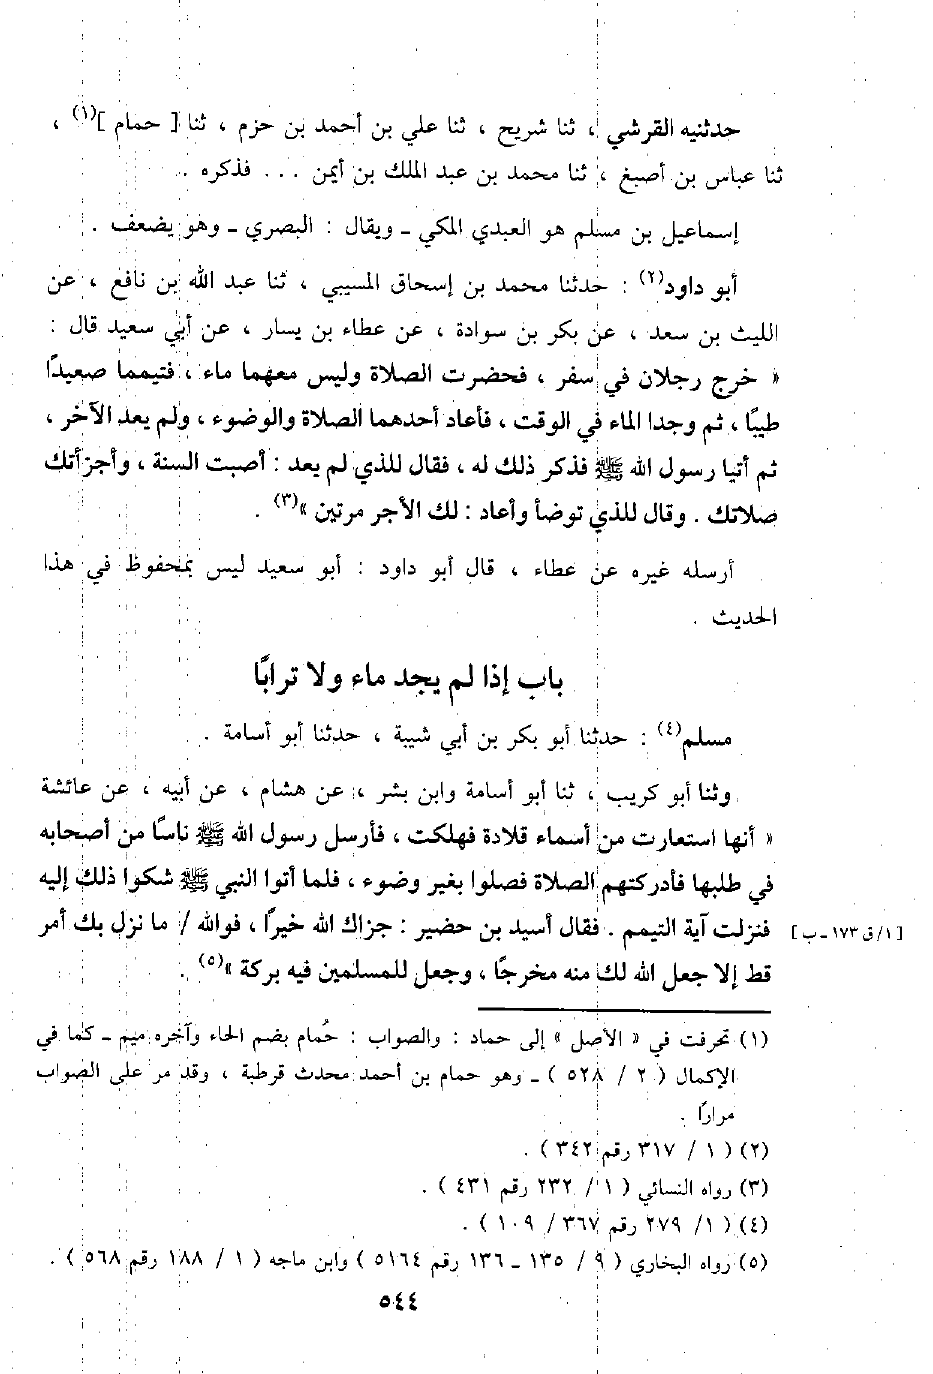 حدثنيه القرشي ، ثنا شريح ، ثنا علي بن أحمد بن حزم ، ثنا [ حمام ](١) ،
ثنا عباس بن أصبغ ، ثنا محمد بن عبد الملك بن أيمن ... فذكره .
إسماعيل بن مسلم هو العبدي المكي ـ ويقال : البصري ـ وهو يضعف .
أبو داود(٢) : حدثنا محمد بن إسحاق المسيبي ، ثنا عبد الله بن نافع ، عن
الليث بن سعد ، عن بكر بن سوادة ، عن عطاء بن يسار ، عن أبي سعيد قال :
« خرج رجلان في سفر ، فحضرت الصلاة وليس معهما ماء ، فتيمما صعيدًا
طيبًا ، ثم وجدا الماء في الوقت ، فأعاد أحدهما الصلاة والوضوء ، ولم يعد الآخر ،
ثم أتيا رسول الله ﷺ فذكر ذلك له ، فقال للذي لم يعد : أصبت السنة ، وأجزأتك
صلاتك . وقال للذي توضأ وأعاد : لك الأجر مرتين »(٣) .
أرسله غيره عن عطاء ، قال أبو داود : أبو سعيد ليس بمحفوظ في هذا
الحديث .
باب إذا لم يجد ماء ولا ترابًا
مسلم(٤) : حدثنا أبو بكر بن أبي شيبة ، حدثنا أبو أسامة .
وثنا أبو كريب ، ثنا أبو أسامة وابن بشر ، عن هشام ، عن أبيه ، عن عائشة
« أنها استعارت من أسماء قلادة فهلكت ، فأرسل رسول الله ﷺ ناسًا من أصحابه
في طلبها فأدركتهم الصلاة فصلوا بغير وضوء ، فلما أتوا النبي ﷺ شكوا ذلك إليه
فنزلت آية التيمم . فقال أسيد بن حضير : جزاك الله خيرًا ، فوالله / ما نزل بك أمر
[ ١/ ق ١٧٣ ـ ب ]
قط إلا جعل الله لك منه مخرجًا ، وجعل للمسلمين فيه بركة »(٥) .
(١) تحرفت في « الأصل » إلى حماد : والصواب : حُمام بضم الحاء وآخره ميم ـ كما في
الإكمال ( ٢ / ٥٢٨ ) ـ وهو حمام بن أحمد محدث قرطبة ، وقد مر على الصواب
مرارًا .
(٢) ( ١ / ٣١٧ رقم ٣٤٢ ) .
(٣) رواه النسائي ( ١ / ٢٣٢ رقم ٤٣١ ) .
(٤) ( ١/ ٢٧٩ رقم ٣٦٧ / ١٠٩ ) .
(٥) رواه البخاري ( ٩ / ١٣٥ ـ ١٣٦ رقم ٥١٦٤ ) وابن ماجه ( ١ / ١٨٨ رقم ٥٦٨ ) .
٥٤٤